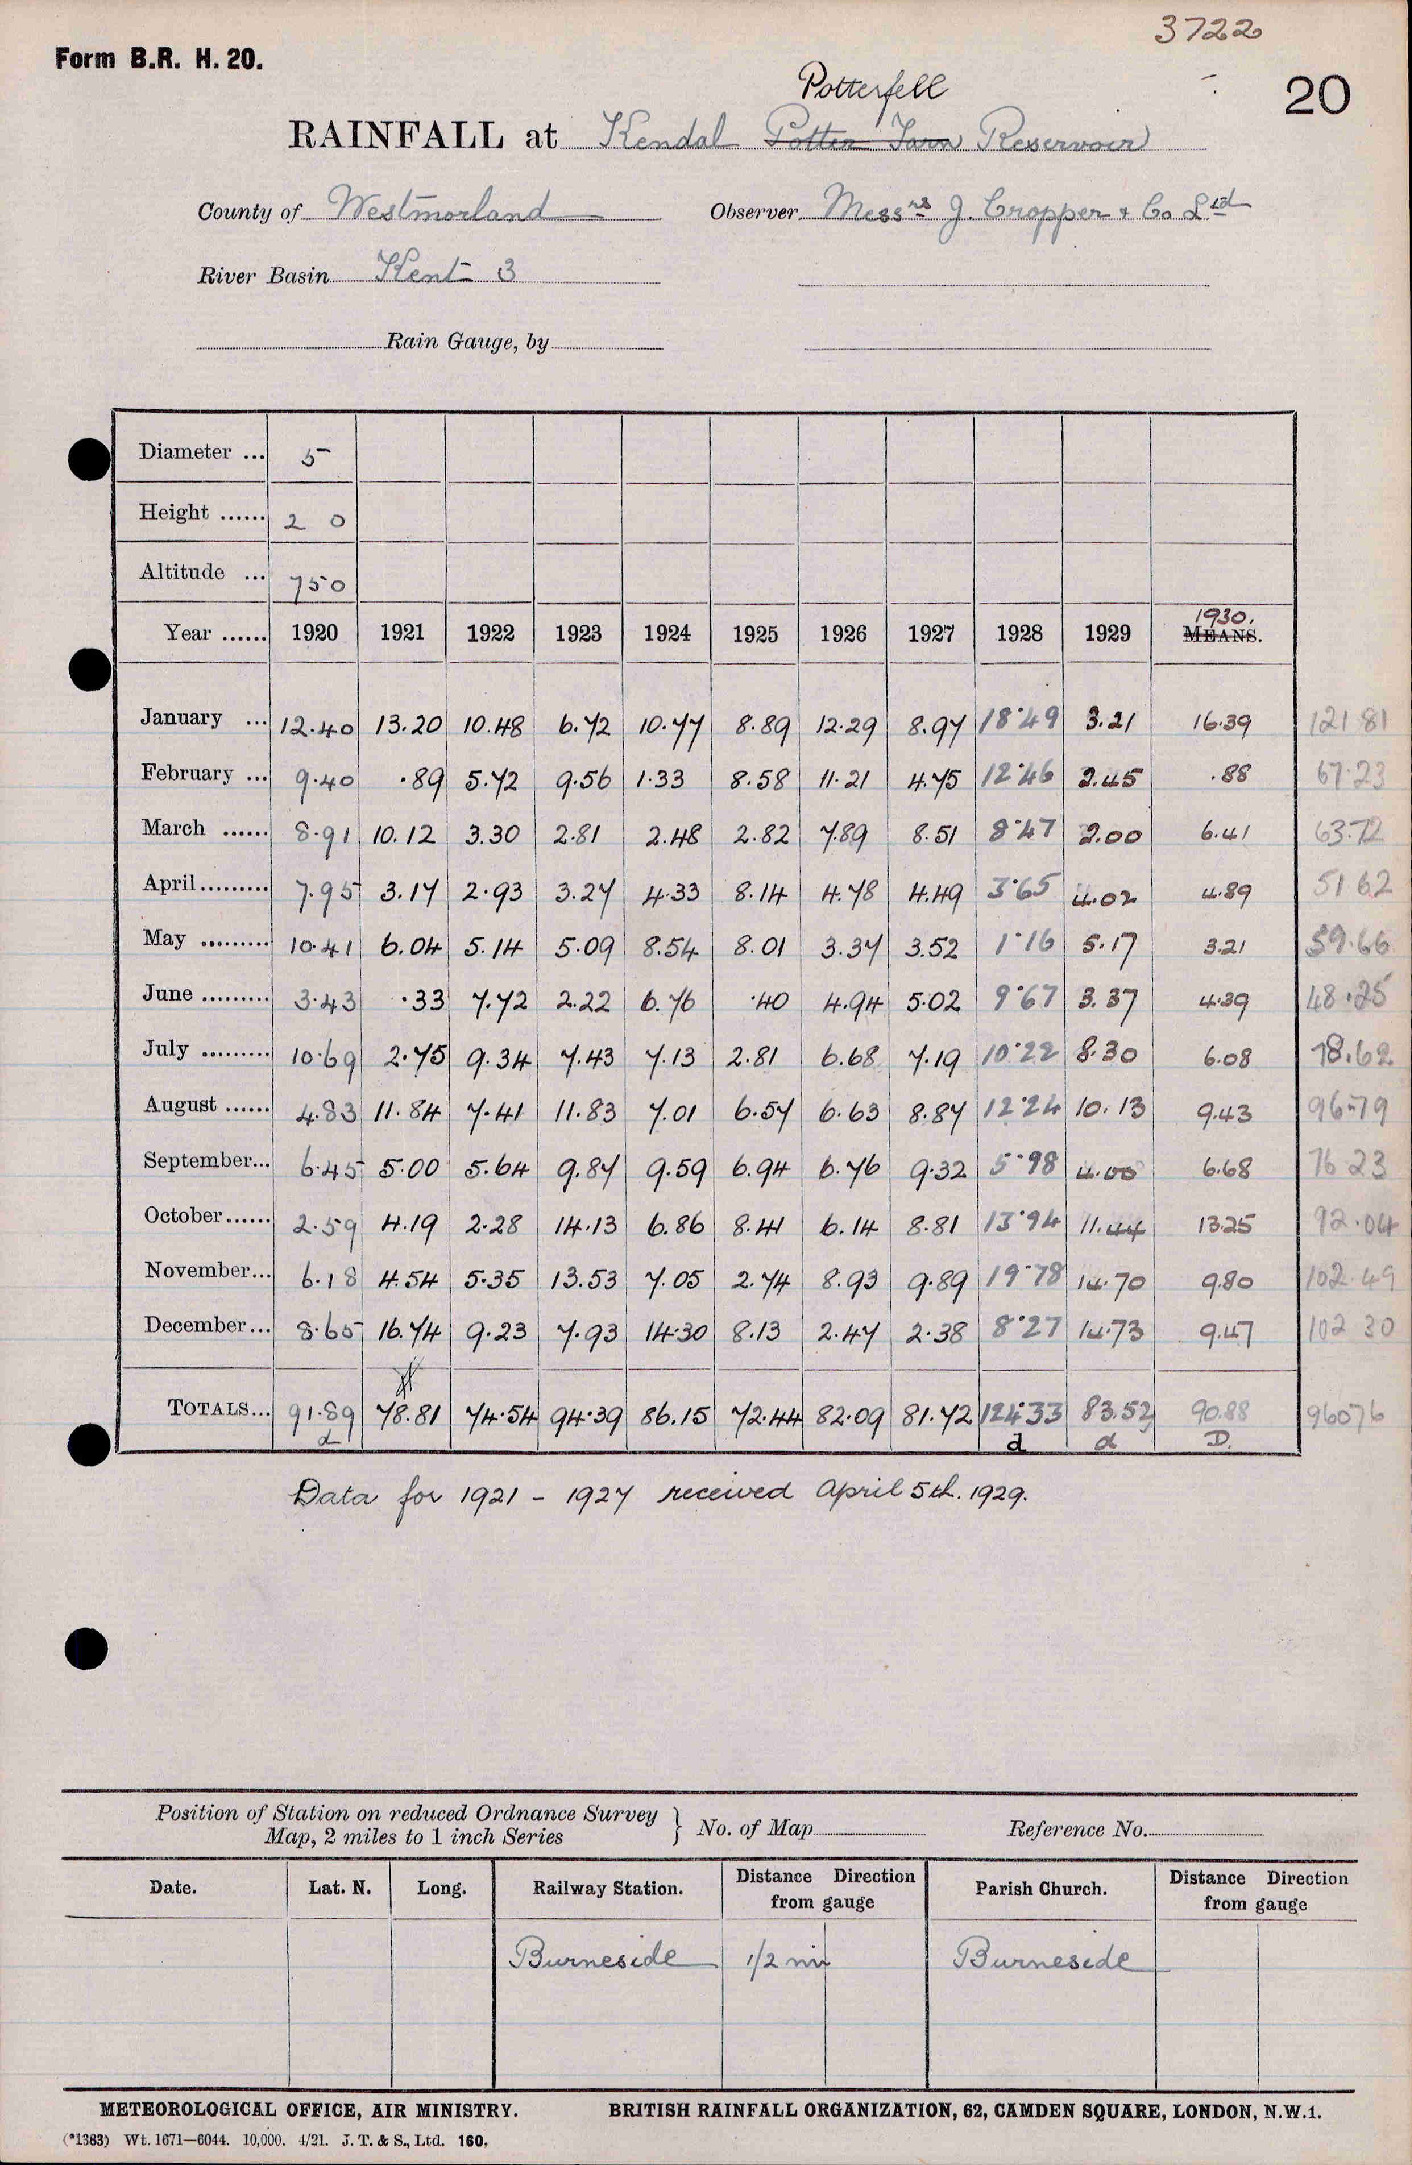 3722
Form B.R. H. 20.
20
Potterfell
RAINFALL at Kendal Potter Tarn Reservoir
County of Westmorland Observer Messrs J. Cropper + Co Ltd
River Basin Kent 3
Rain Gauge, by
Diameter ... 5
Height ...... 2 0
Altitude ... 750
1930.
Year ...... 1920 1921 1922 1923 1924 1925 1926 1927 1928 1929 MEANS.
January ... 12.40 13.20 10.48 6.72 10.77 8.89 12.29 8.97 18.49 3.21 16.39 121 81
February ... 9.40 .89 5.72 9.56 1.33 8.58 11.21 4.75 12.46 2.45 .88 67.23
March ...... 8.91 10.12 3.30 2.81 2.48 2.82 7.89 8.51 8.47 2.00 6.41 63.72
April ......... 7.95 3.17 2.93 3.27 4.33 8.14 4.78 4.49 3.65 4.02 4.89 51 62
May ......... 10.41 6.04 5.14 5.09 8.54 8.01 3.37 3.52 1.16 5.17 3.21 59.66
June ......... 3.43 .33 7.72 2.22 6.76 .40 4.94 5.02 9.67 3.37 4.39 48.25
July ......... 10.69 2.75 9.34 7.43 7.13 2.81 6.68 7.19 10.22 8.30 6.08 78.62
August ...... 4.83 11.84 7.41 11.83 7.01 6.57 6.63 8.87 12.24 10.13 9.43 96.79
September... 6.45 5.00 5.64 9.87 9.59 6.94 6.76 9.32 5.98 4.00 6.68 76 23
October...... 2.59 4.19 2.28 14.13 6.86 8.41 6.14 8.81 13.94 11.44 13.25 92.04
November... 6.18 4.54 5.35 13.53 7.05 2.74 8.93 9.89 19.78 14.70 9.80 102.49
December... 8.65 16.74 9.23 7.93 14.30 8.13 2.47 2.38 8.27 14.73 9.47 102 30
TOTALS... 91.89 78.81 74.54 94.39 86.15 72.44 82.09 81.72 124.33 83.52 90.88 96076
d d d D.
Data for 1921 - 1927 received April 5th. 1929.
Position of Station on reduced Ordnance Survey
Map, 2 miles to 1 inch Series
} No. of Map Reference No.
Date. Lat. N. Long. Railway Station. Distance Direction from gauge Parish Church. Distance Direction from gauge
Burneside 1/2 mi Burneside
METEOROLOGICAL OFFICE, AIR MINISTRY. BRITISH RAINFALL ORGANIZATION, 62, CAMDEN SQUARE, LONDON, N.W.1.
(*1383) Wt. 1671—6044. 10,000. 4/21. J. T. & S., Ltd. 160.